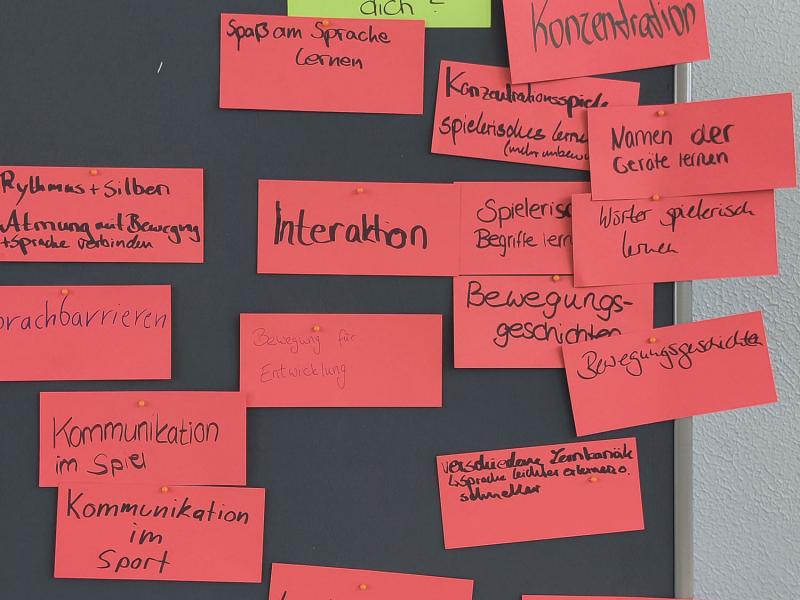 dich?
Spaß am Sprache
lernen
Konzentration
Konzentrationsspiele
spielerisches lernen
(mehr unbewu
Namen der
Geräte lernen
Rythmus + Silben
Atmung mit Bewegung
+ Sprache verbinden
Interaktion
Spielerisc
Begriffe lern
Wörter spielerisch
lernen
prachbarrieren
Bewegung für
Entwicklung
Bewegungs-
geschichten
Bewegungsgeschichten
Kommunikation
im Spiel
Kommunikation
im
Sport
verschiedene Lernkanäle
↳ Sprache leichter erlernen o.
schneller